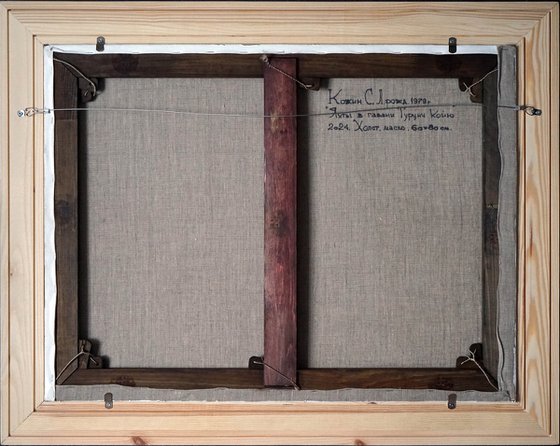 Кожин С. Л рожд 1979г.
"Яхты в гавани Турунч Койю
2024. Холст, масло. 60x80 см.